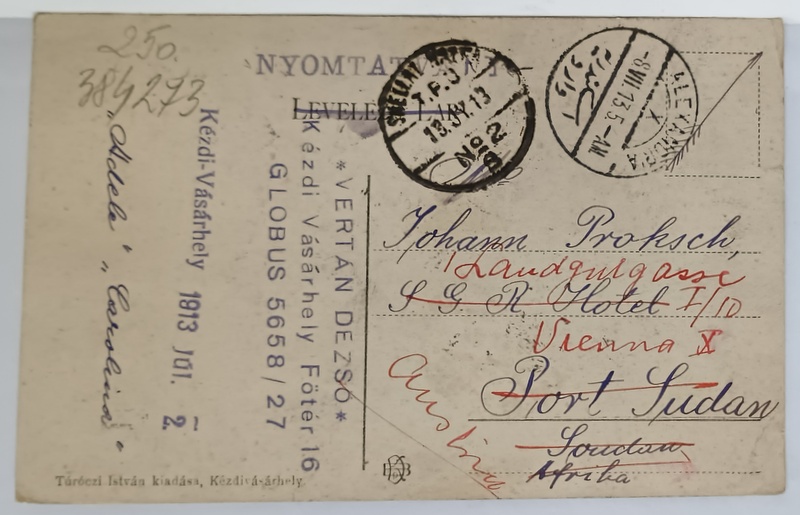 250.
384273
„Adela“ „Carolina“
Kézdi-Vásárhely 1913 JÚL. 2.
*VERTÁN DEZSŐ*
Kézdi Vásárhely Főtér 16
GLOBUS 5658/27
NYOMTATVÁNY
LEVELEZŐ-LAP
SHELLAL
T.P.O
13.JY.13
No 2
ALEXANDRIA
-8.VII.13.5-AM
X
Johann Proksch,
Landgutgasse
S G R Hotel I/10
Vienna X
Port Sudan
Austria
Soudan
Afrika
Túróczi István kiadása, Kézdivásárhely.